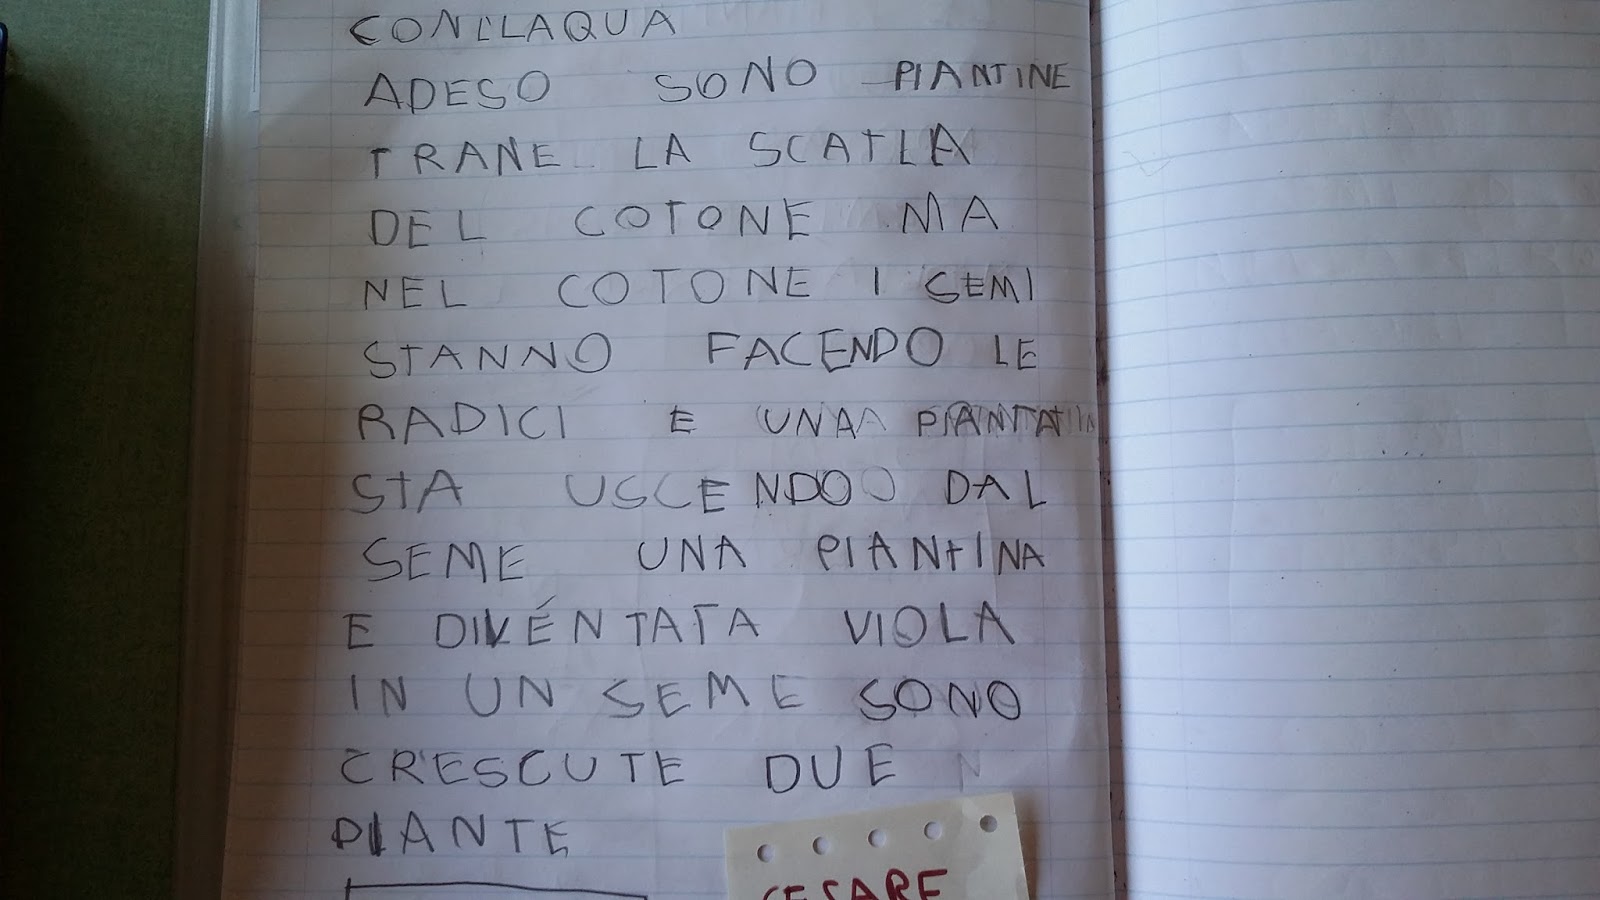 CON LAQUA
ADESO SONO PIANTINE
TRANE LA SCATLA
DEL COTONE MA
NEL COTONE I SEMI
STANNO FACENDO LE
RADICI E UNA PIANTIN
STA USCENDO DAL
SEME UNA PIANTINA
E DIVÉNTATA VIOLA
IN UN SEME SONO
CRESCUTE DUE
PIANTE
CESARE